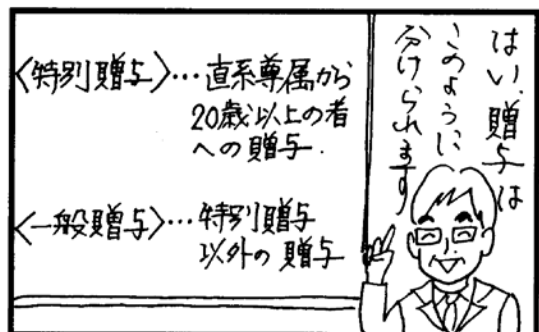 はい、贈与は
このように
分けられます
〈特別贈与〉…直系尊属から
20歳以上の者
への贈与.
〈一般贈与〉…特別贈与
以外の贈与